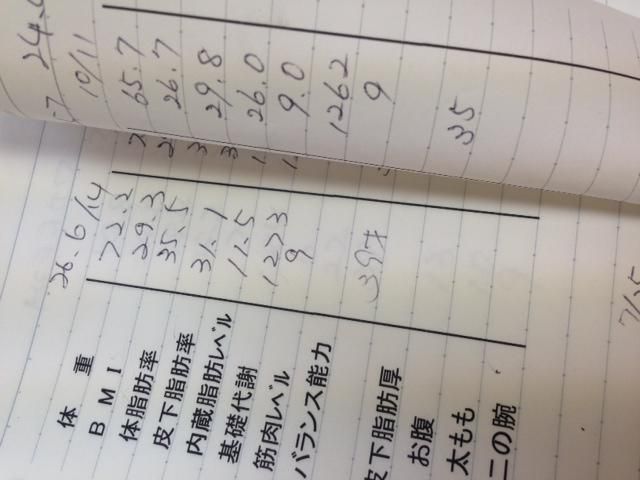 体重
BMI
体脂肪率
皮下脂肪率
内蔵脂肪レベル
基礎代謝
筋肉レベル
バランス能力
皮下脂肪厚
お腹
太もも
二の腕
26.6/14
72.2
29.3
35.5
31.1
11.5
1273
9
39才
10/11
65.7
26.7
29.8
26.0
9.0
1262
9
35
7/25